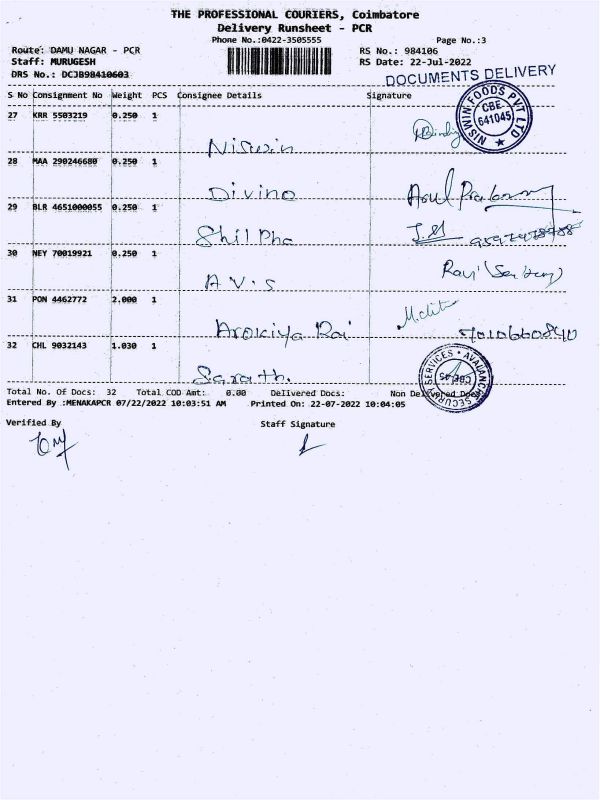 THE PROFESSIONAL COURIERS, Coimbatore
Delivery Runsheet - PCR
Phone No.:0422-3505555 Page No.:3
Route: DAMU NAGAR - PCR RS No.: 984106
Staff: MURUGESH RS Date: 22-Jul-2022
DRS No.: DCJB98410603 DOCUMENTS DELIVERY
S No Consignment No Weight PCS Consignee Details Signature
NISWIN FOODS PVT LTD
CBE
641045
27 KRR 5503219 0.250 1
Niswin
28 MAA 290246680 0.250 1
Divino
29 BLR 4651000055 0.250 1
Shil Pha
30 NEY 70019921 0.250 1
A.V.S
31 PON 4462772 2.000 1
Arokiya Rai
7010660840
32 CHL 9032143 1.030 1
Sarath.
AVALANCHE SECURITY SERVICES
CBE-45
Total No. Of Docs: 32 Total COD Amt: 0.00 Delivered Docs: Non Delivered Docs:
Entered By :MENAKAPCR 07/22/2022 10:03:51 AM Printed On: 22-07-2022 10:04:05
Verified By Staff Signature